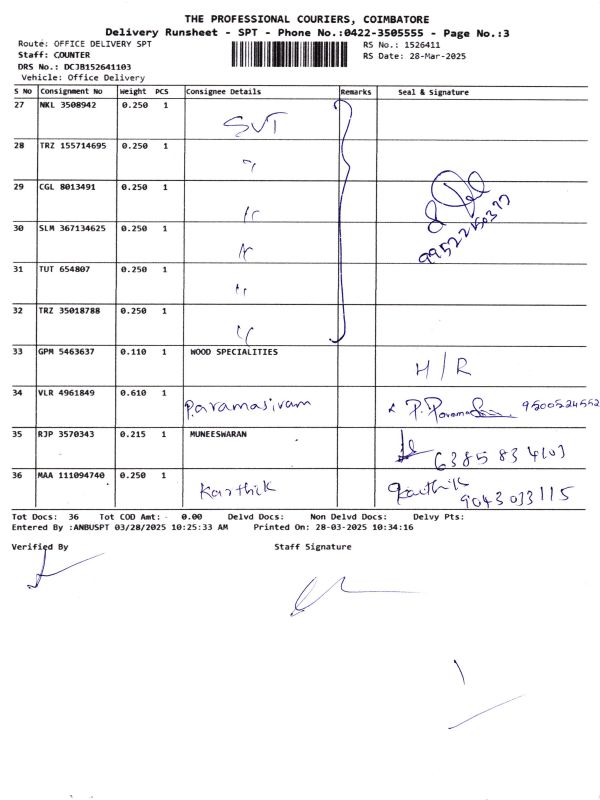 THE PROFESSIONAL COURIERS, COIMBATORE
Delivery Runsheet - SPT - Phone No.:0422-3505555 - Page No.:3
Route: OFFICE DELIVERY SPT RS No.: 1526411
Staff: COUNTER RS Date: 28-Mar-2025
DRS No.: DCJB152641103
Vehicle: Office Delivery
S No Consignment No Weight PCS Consignee Details Remarks Seal & Signature
27 NKL 3508942 0.250 1 SVT
28 TRZ 155714695 0.250 1 "
29 CGL 8013491 0.250 1 "
30 SLM 367134625 0.250 1 "
31 TUT 654807 0.250 1 "
32 TRZ 35018788 0.250 1 "
33 GPM 5463637 0.110 1 WOOD SPECIALITIES H/R
34 VLR 4961849 0.610 1 Paramasivam 9500524552
35 RJP 3570343 0.215 1 MUNEESWARAN 6385834103
36 MAA 111094740 0.250 1 Karthik Karthik
9043033115
Tot Docs: 36 Tot COD Amt: - 0.00 Delvd Docs: Non Delvd Docs: Delvy Pts:
Entered By :ANBUSPT 03/28/2025 10:25:33 AM Printed On: 28-03-2025 10:34:16
Verified By Staff Signature